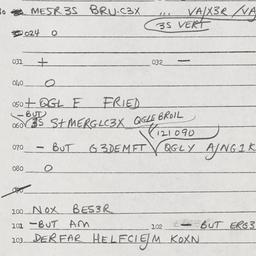 MESR3S BRU-C3X ... VA/X3R /VA
3S VERT
024 O
031 + 032 —
040 O
050 + QGL F FRIED
-BUT-
060 3S S+MERGLC3X QGLSBROIL
121090
070 - BUT G3DEMFT QGLY A/NG1K
080 O
090
100 NOX BES3R
101 -BUT AM 102 — BUT ERG3
103 DERFAR HELFCIE/M KOXN